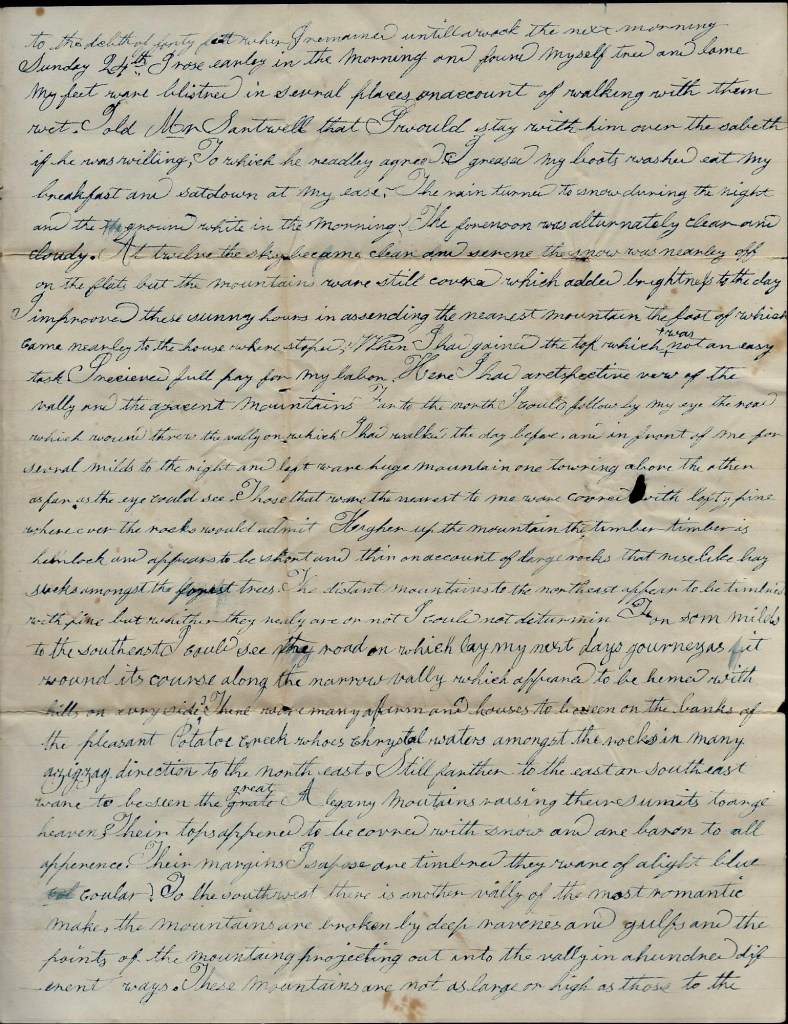 to the debth of forty feet wher I remained untill awook the next morning
Sunday 24th I rose earley in the morning and found myself tired and lame
My feet ware blistred in several places, on account of walking with them
wet. Told Mr Santwell that I would stay with him over the sabeth
if he was willing, To which he readley agreed I greased my boots washed eat my
breakfast and sat down at my ease. The rain turned to snow during the night
and the ground white in the morning. The forenoon was alturnately clear and
cloudy. At twelve the sky became clear and serene the snow was nearley off
on the flats but the mountains ware still covred which added brightness to the day
I improoved these sunny hours in assending the nearest mountain the foot of which
came nearley to the house where stoped, When I had gained the top which was not an easy
task I recieved full pay for my labor. Here I had a retspective vew of the
vally and the adjacent mountains Far to the north I could follow by my eye the road
which wound threw the vally on which I had walked the day before, and in front of me for
sevral milds to the right and left ware huge mountain one towring above the other
as far as the eye could see. Those that ware the nearest to me ware covred with lofty pine
where ever the rocks would admit Heigher up the mountain the timber timber is
hemlock and appears to be short and thin on account of large rocks that rise like hay
stacks amongst the forest trees. The distant mountains to the northeast appear to be timbred
with pine but whither they realy are or not I could not deturmin For som milds
to the southeast I could see the road on which lay my next days journey as it
wound its course along the narrow vally which appeared to be hemed with
hills on evry side, There ware many a firm and houses to be seen on the banks of
the pleasant Potatoe creek whoes chrystal waters amongst the rocks in many
a zigzag direction to the north east. Still farther to the east or southeast
ware to be seen the great grate Alegany Moutains raising theire sumits towards
heaven, Their tops appered to be covred with snow and are baron to all
apperence. Their margins I supose are timbred they ware of a light blue
coular. To the southwest there is another vally of the most romantic
make, the mountains are broken by deep ravenes and gulfs and the
points of the mountains projecting out into the vally in a hundred dif
erent ways. These Mountains are not as large or high as those to the